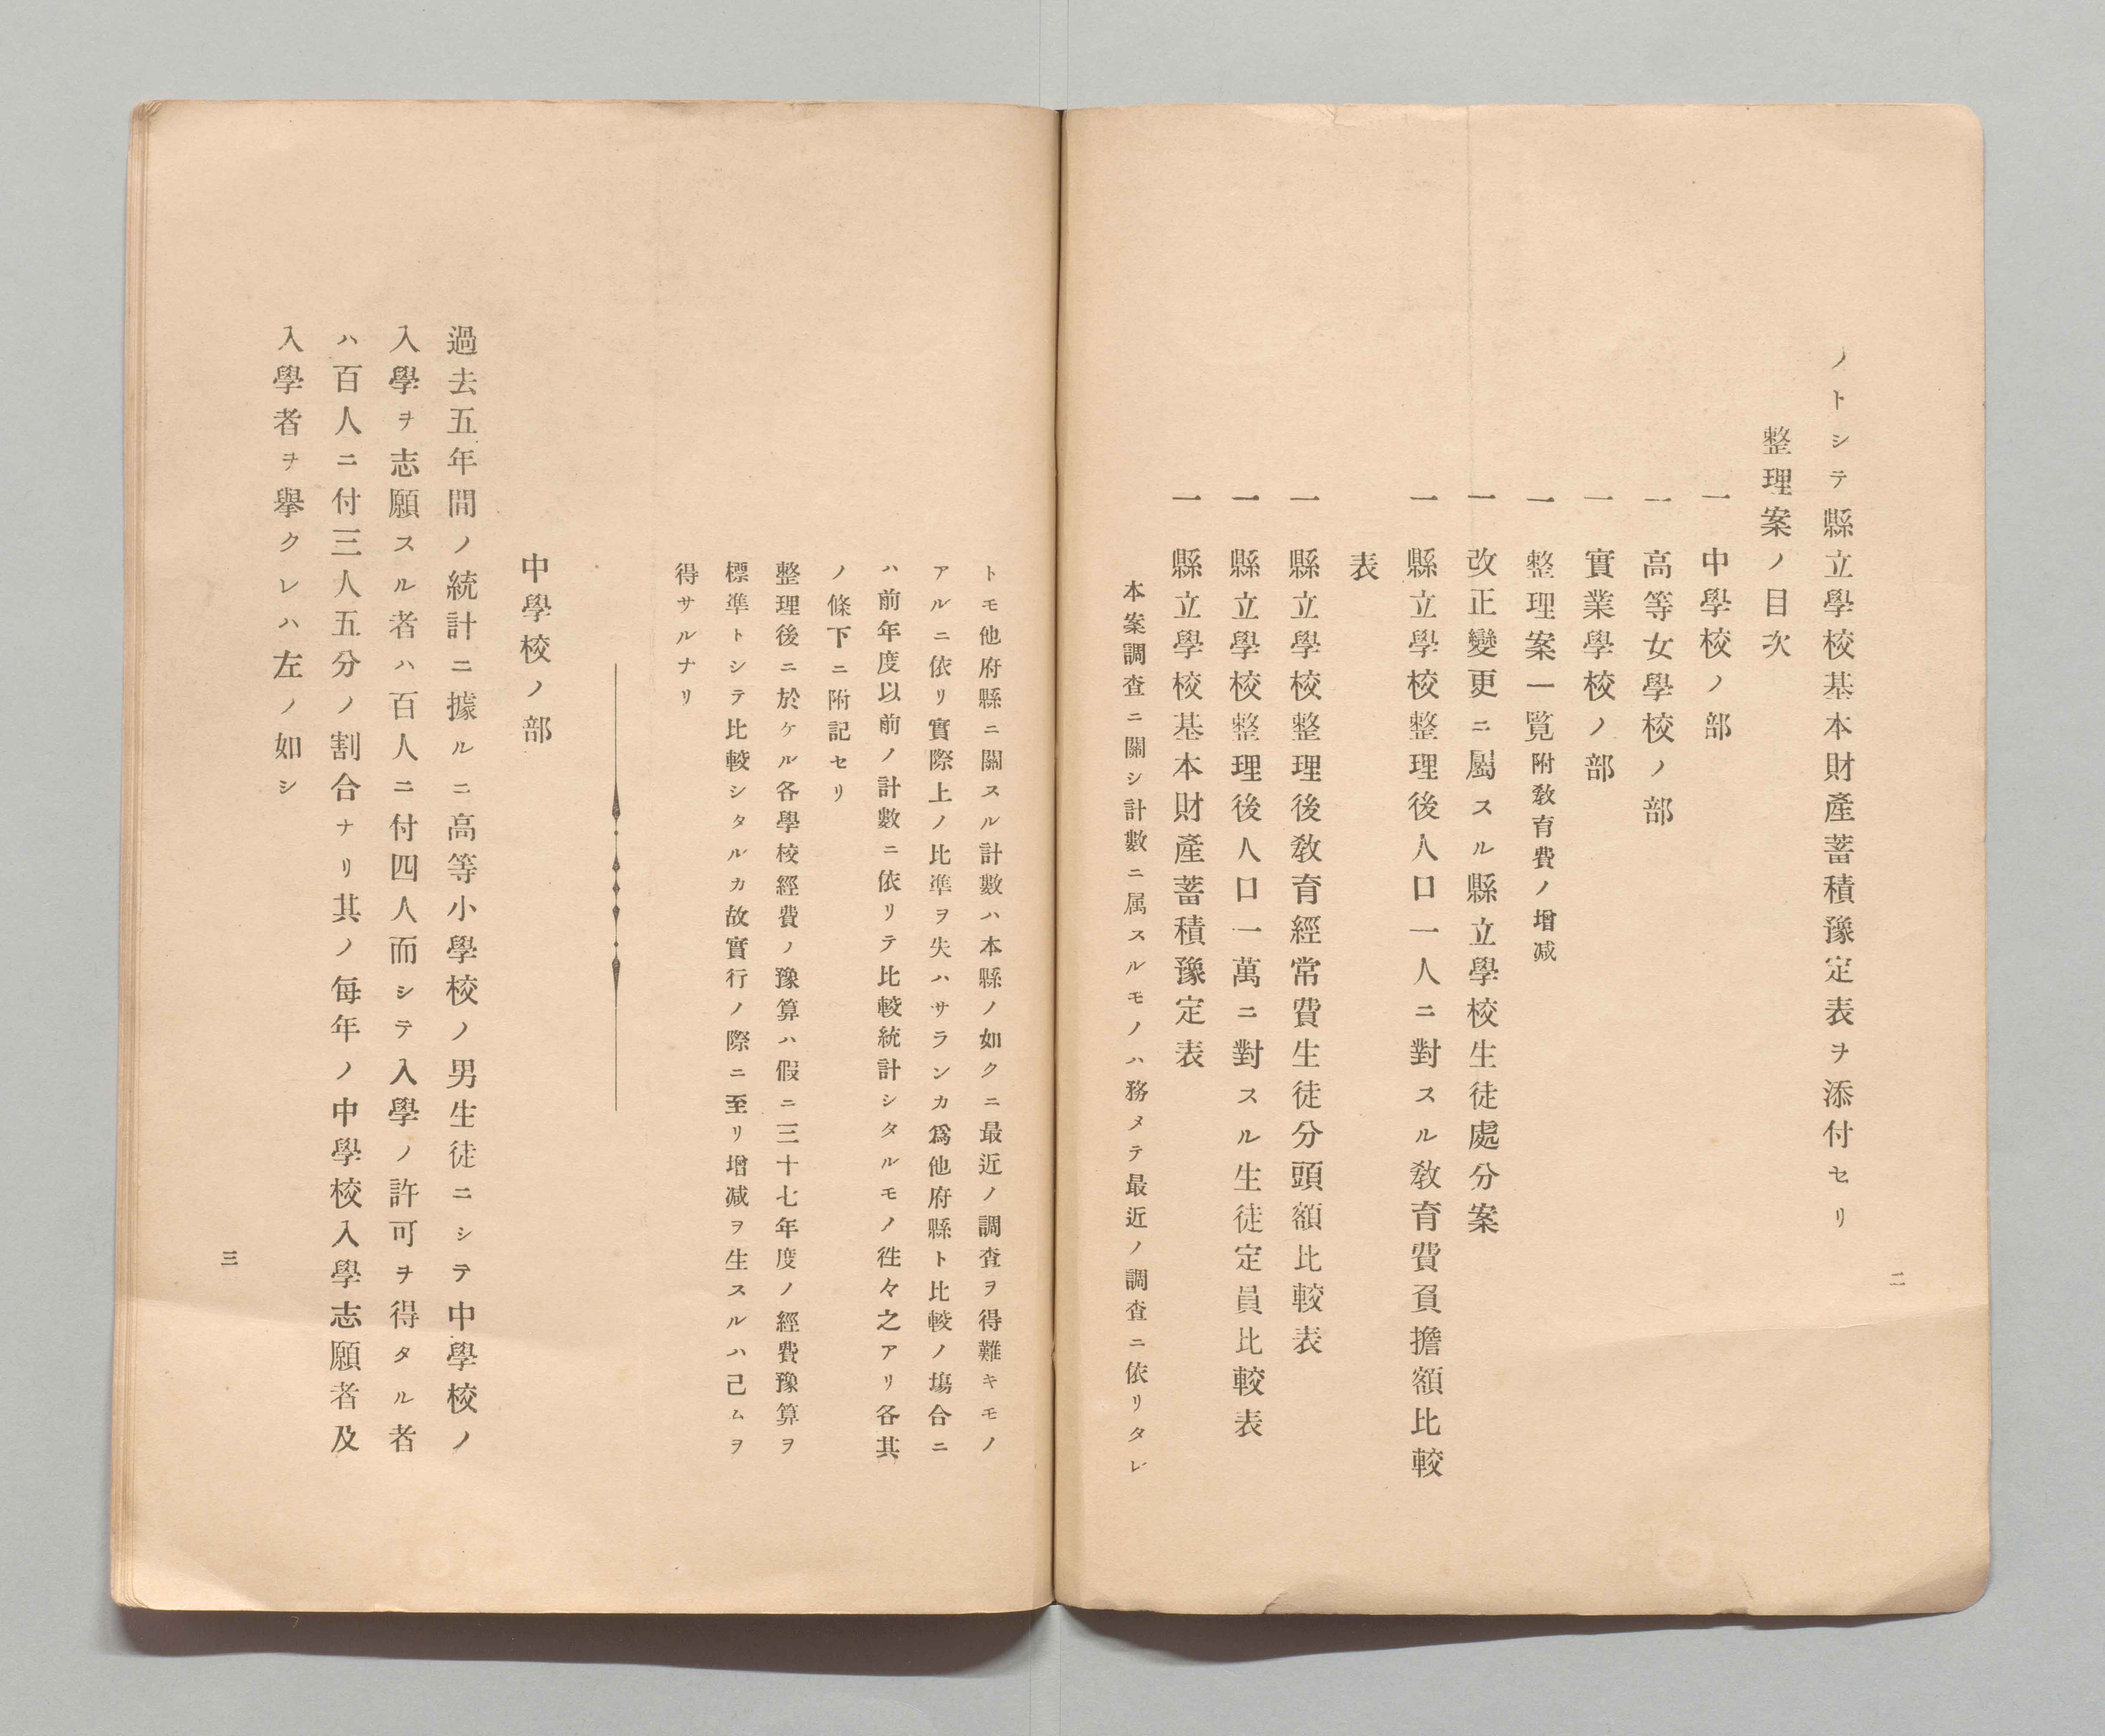 ノトシテ縣立學校基本財產蓄積豫定表ヲ添付セリ
整理案ノ目次
一 中學校ノ部
一 高等女學校ノ部
一 實業學校ノ部
一 整理案一覽附敎育費ノ增减
一 改正變更ニ屬スル縣立學校生徒處分案
一 縣立學校整理後人口一人ニ對スル敎育費負擔額比較
表
一 縣立學校整理後敎育經常費生徒分頭額比較表
一 縣立學校整理後人口一萬ニ對スル生徒定員比較表
一 縣立學校基本財產蓄積豫定表
本案調査ニ關シ計數ニ属スルモノハ務メテ最近ノ調査ニ依リタレ
二
トモ他府縣ニ關スル計數ハ本縣ノ如クニ最近ノ調査ヲ得難キモノ
アルニ依リ實際上ノ比準ヲ失ハサランカ爲他府縣ト比較ノ塲合ニ
ハ前年度以前ノ計數ニ依リテ比較統計シタルモノ徃々之アリ各其
ノ條下ニ附記セリ
整理後ニ於ケル各學校經費ノ豫算ハ假ニ三十七年度ノ經費豫算ヲ
標準トシテ比較シタルカ故實行ノ際ニ至リ增减ヲ生スルハ己ムヲ
得サルナリ
中學校ノ部
過去五年間ノ統計ニ據ルニ高等小學校ノ男生徒ニシテ中學校ノ
入學ヲ志願スル者ハ百人ニ付四人而シテ入學ノ許可ヲ得タル者
ハ百人ニ付三人五分ノ割合ナリ其ノ每年ノ中學校入學志願者及
入學者ヲ擧クレハ左ノ如シ
三